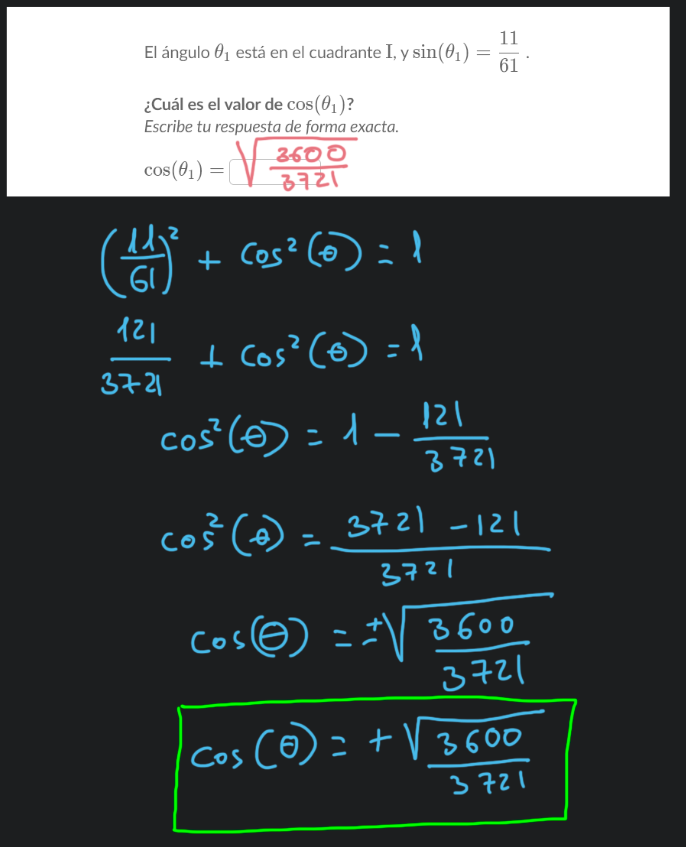 El ángulo θ₁ está en el cuadrante I, y sin(θ₁) = 11/61 .
¿Cuál es el valor de cos(θ₁)?
Escribe tu respuesta de forma exacta.
cos(θ₁) = √(3600/3721)
(11/61)² + cos²(θ) = 1
121/3721 + cos²(θ) = 1
cos²(θ) = 1 − 121/3721
cos²(θ) = (3721 − 121)/3721
cos(θ) = ±√(3600/3721)
cos(θ) = +√(3600/3721)